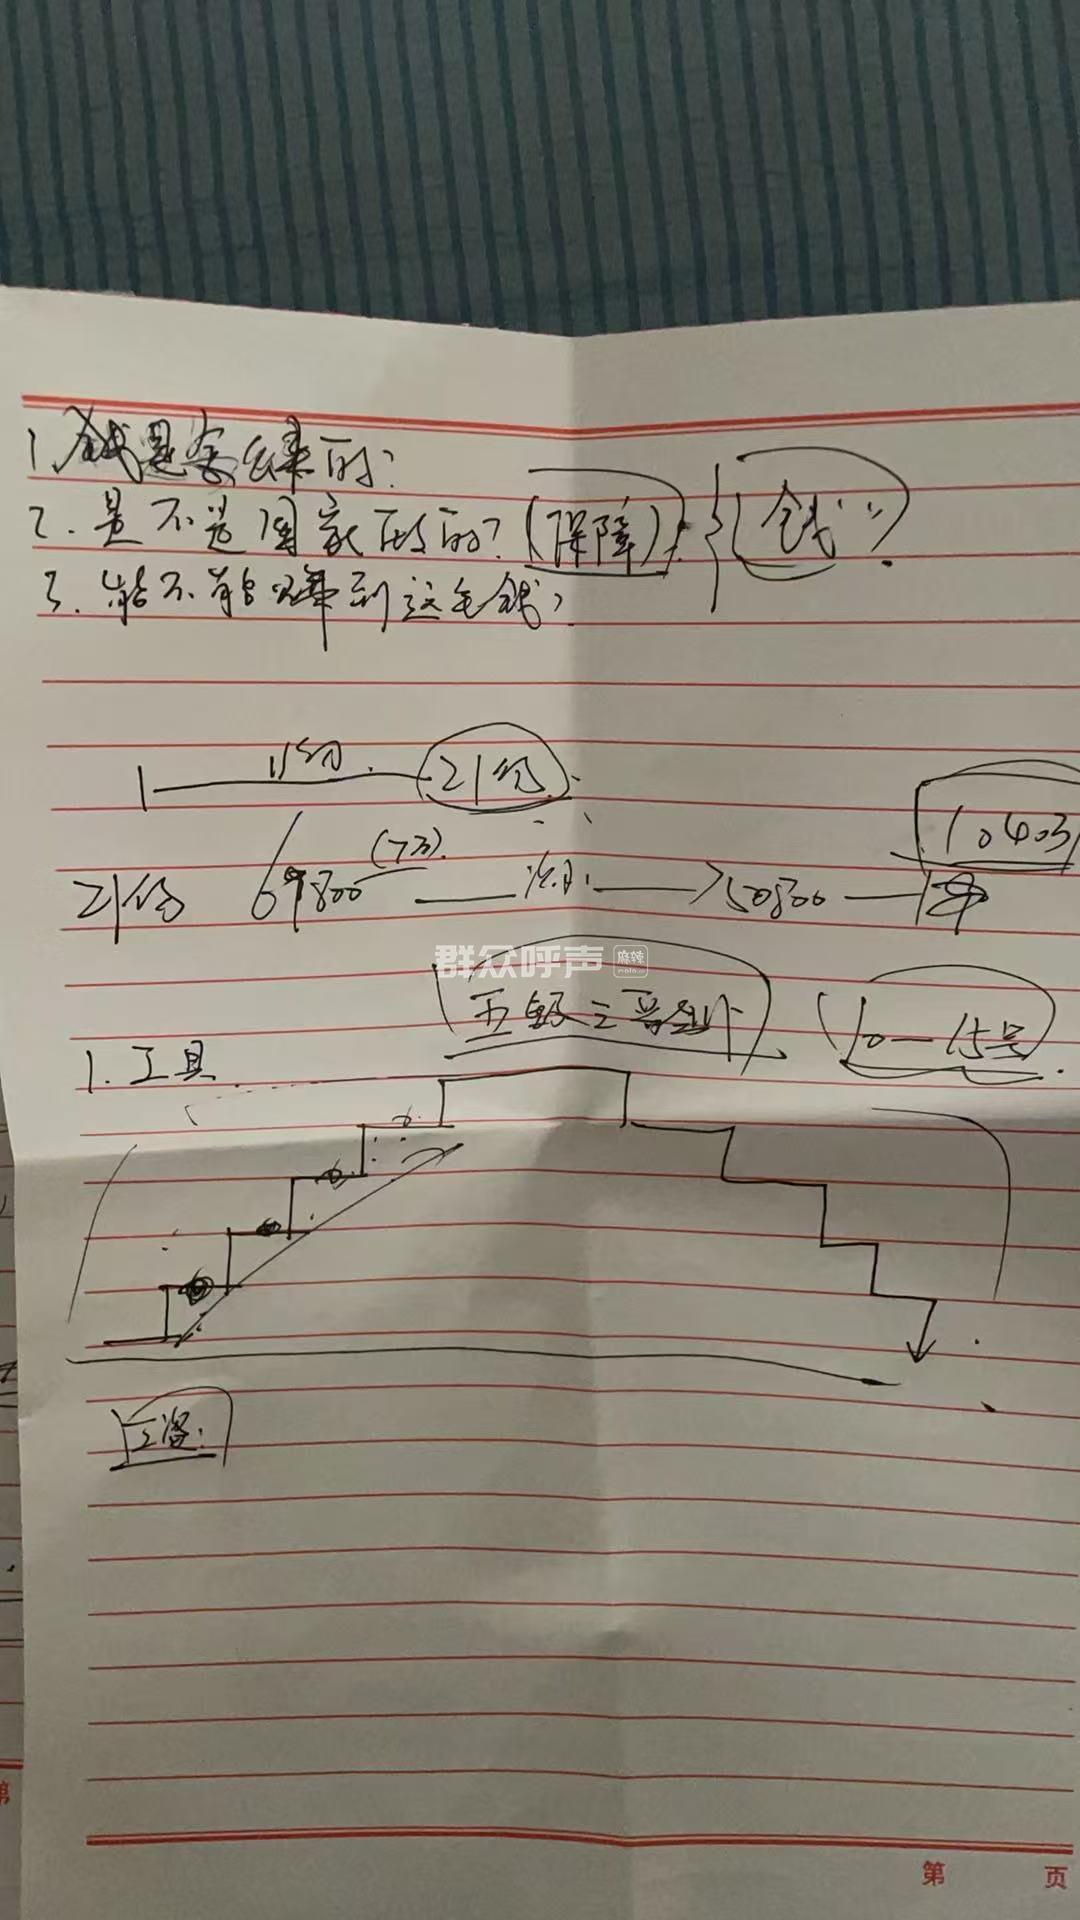 1.钱是怎么来的?
2.是不是国家的钱?(保障)
"钱"
3.能不能赚到这笔钱?
1
11份
21份
1040万
21份 69800 (7万) 次月 750800
群众呼声 麻辣
五级三晋制
10—15号
1.工具
工资
第 页
第